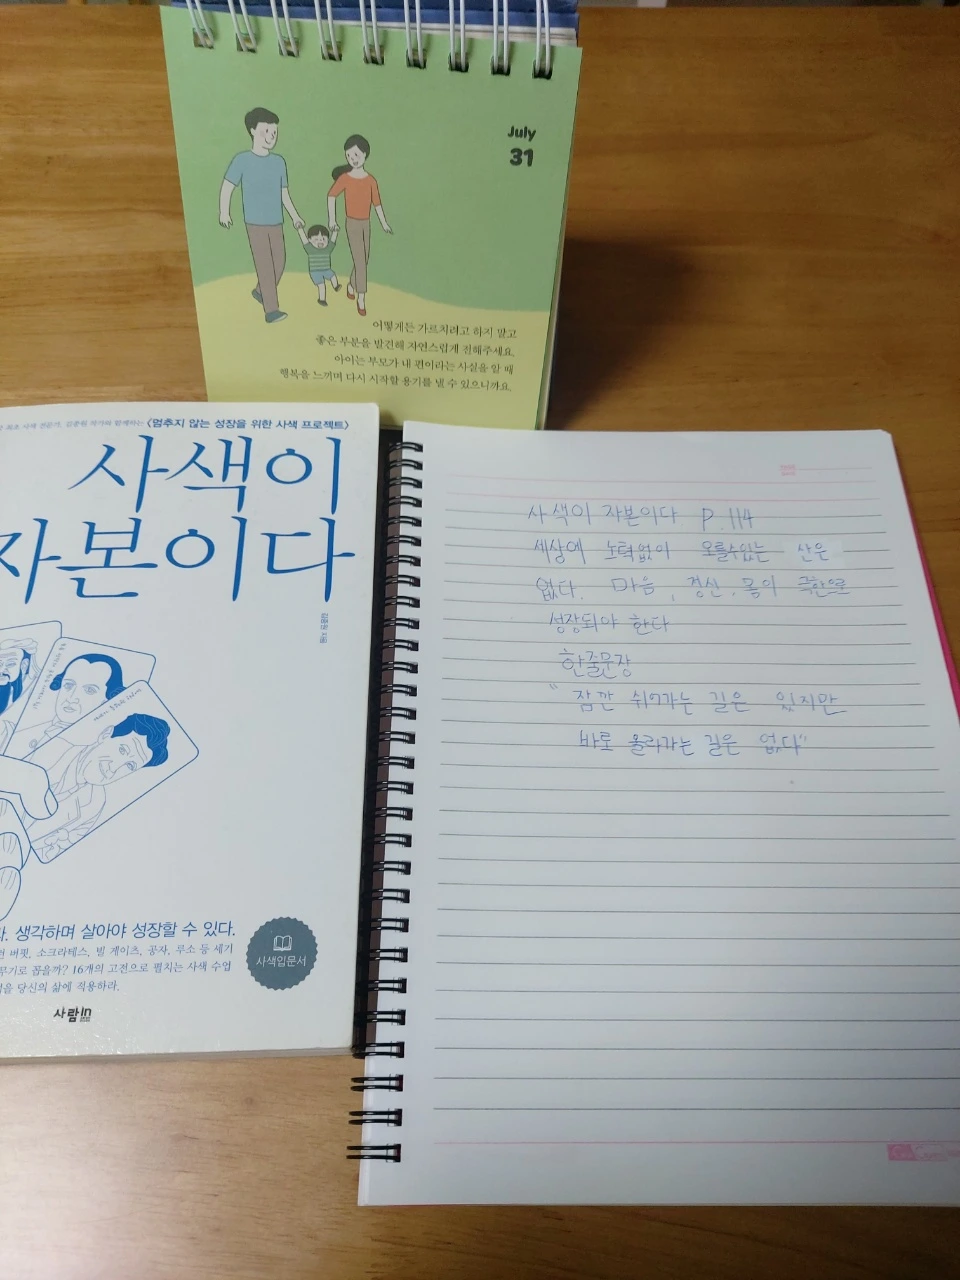 July
31
어떻게든 가르치려고 하지 말고
좋은 부분을 발견해 자연스럽게 전해주세요.
아이는 부모가 내 편이라는 사실을 알 때
행복을 느끼며 다시 시작할 용기를 낼 수 있으니까요.
최초 사색 전문가, 김종원 작가와 함께하는 《멈추지 않는 성장을 위한 사색 프로젝트》
사색이
자본이다
김종원 지음
생각하며 살아야 성장할 수 있다.
버핏, 소크라테스, 빌 게이츠, 공자, 루소 등 세기
무기로 꼽을까? 16개의 고전으로 펼치는 사색 수업
당신의 삶에 적용하라.
사색입문서
사람in
사색이 자본이다 P.114
세상에 노력없이 오를수있는 산은
없다. 마음, 정신, 몸의 극한으로
성장되야 한다
한줄문장
"잠깐 쉬어가는 길은 있지만
바로 올라가는 길은 없다"